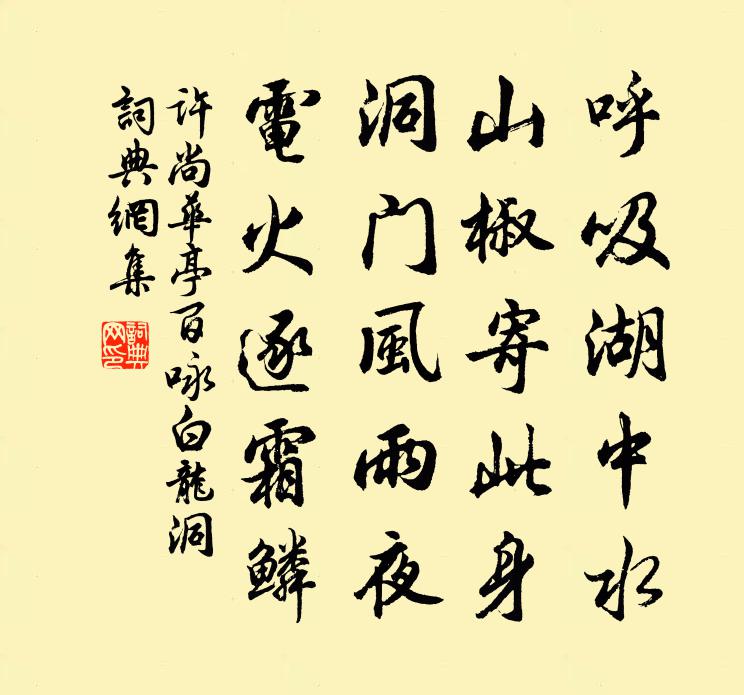 呼吸湖中水
山椒寄此身
洞门風雨夜
電火逐霜鱗
许尚華亭百咏白龍洞
詞典網集
詞典网印